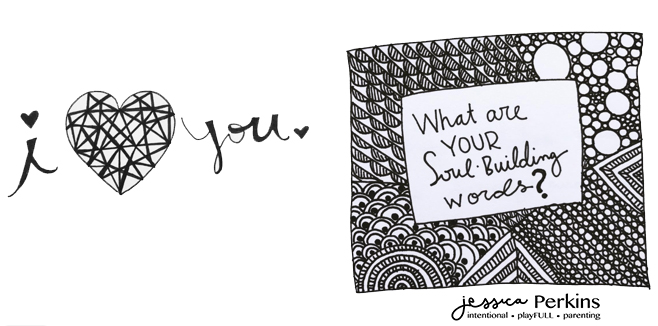 i you.
What are
YOUR
Soul·Building
words?
jessica Perkins
intentional • playFULL • parenting